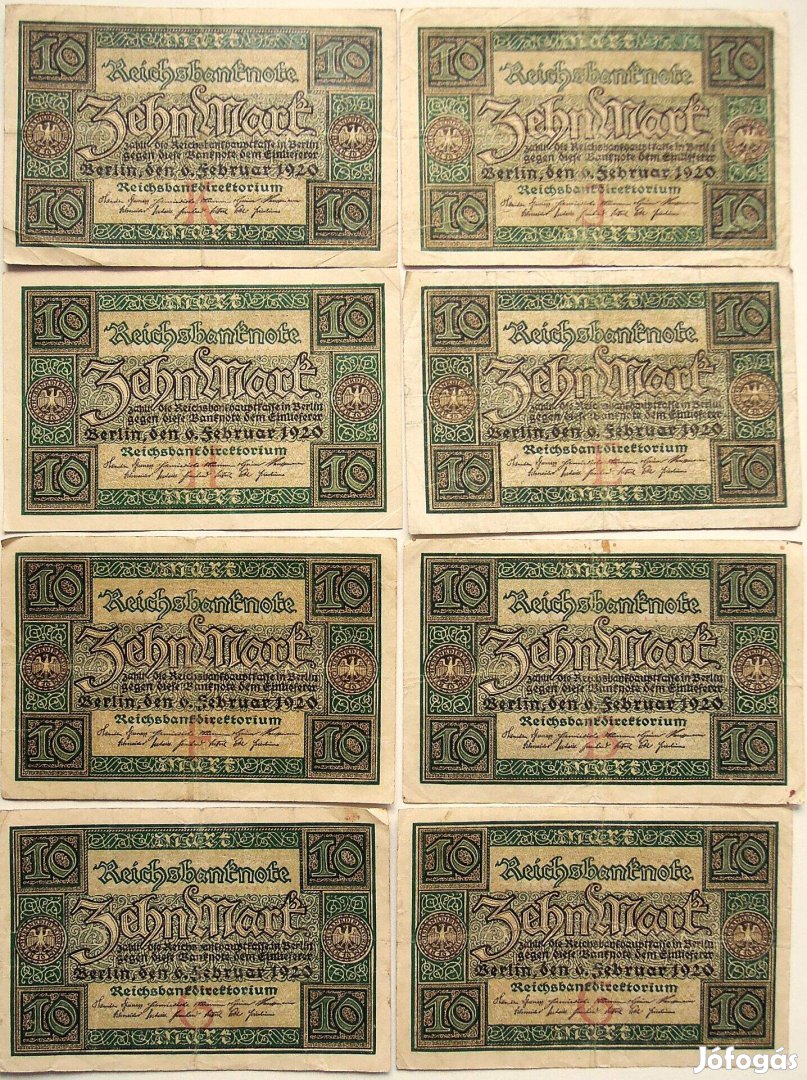 10 mark 10
Reichsbanknote
Zehn Mark
zahlt die Reichsbankhauptkasse in Berlin
gegen diese Banknote dem Einlieferer
Berlin, den 6. Februar 1920
Reichsbankdirektorium
10 mark 10
10 mark 10
Reichsbanknote
Zehn Mark
zahlt die Reichsbankhauptkasse in Berlin
gegen diese Banknote dem Einlieferer
Berlin, den 6. Februar 1920
Reichsbankdirektorium
10 mark 10
10 mark 10
Reichsbanknote
Zehn Mark
zahlt die Reichsbankhauptkasse in Berlin
gegen diese Banknote dem Einlieferer
Berlin, den 6. Februar 1920
Reichsbankdirektorium
10 mark 10
10 mark 10
Reichsbanknote
Zehn Mark
zahlt die Reichsbankhauptkasse in Berlin
gegen diese Banknote dem Einlieferer
Berlin, den 6. Februar 1920
Reichsbankdirektorium
10 mark 10
10 mark 10
Reichsbanknote
Zehn Mark
zahlt die Reichsbankhauptkasse in Berlin
gegen diese Banknote dem Einlieferer
Berlin, den 6. Februar 1920
Reichsbankdirektorium
10 mark 10
10 mark 10
Reichsbanknote
Zehn Mark
zahlt die Reichsbankhauptkasse in Berlin
gegen diese Banknote dem Einlieferer
Berlin, den 6. Februar 1920
Reichsbankdirektorium
10 mark 10
10 mark 10
Reichsbanknote
Zehn Mark
zahlt die Reichsbankhauptkasse in Berlin
gegen diese Banknote dem Einlieferer
Berlin, den 6. Februar 1920
Reichsbankdirektorium
10 mark 10
10 mark 10
Reichsbanknote
Zehn Mark
zahlt die Reichsbankhauptkasse in Berlin
gegen diese Banknote dem Einlieferer
Berlin, den 6. Februar 1920
Reichsbankdirektorium
10 mark 10
Jófogás